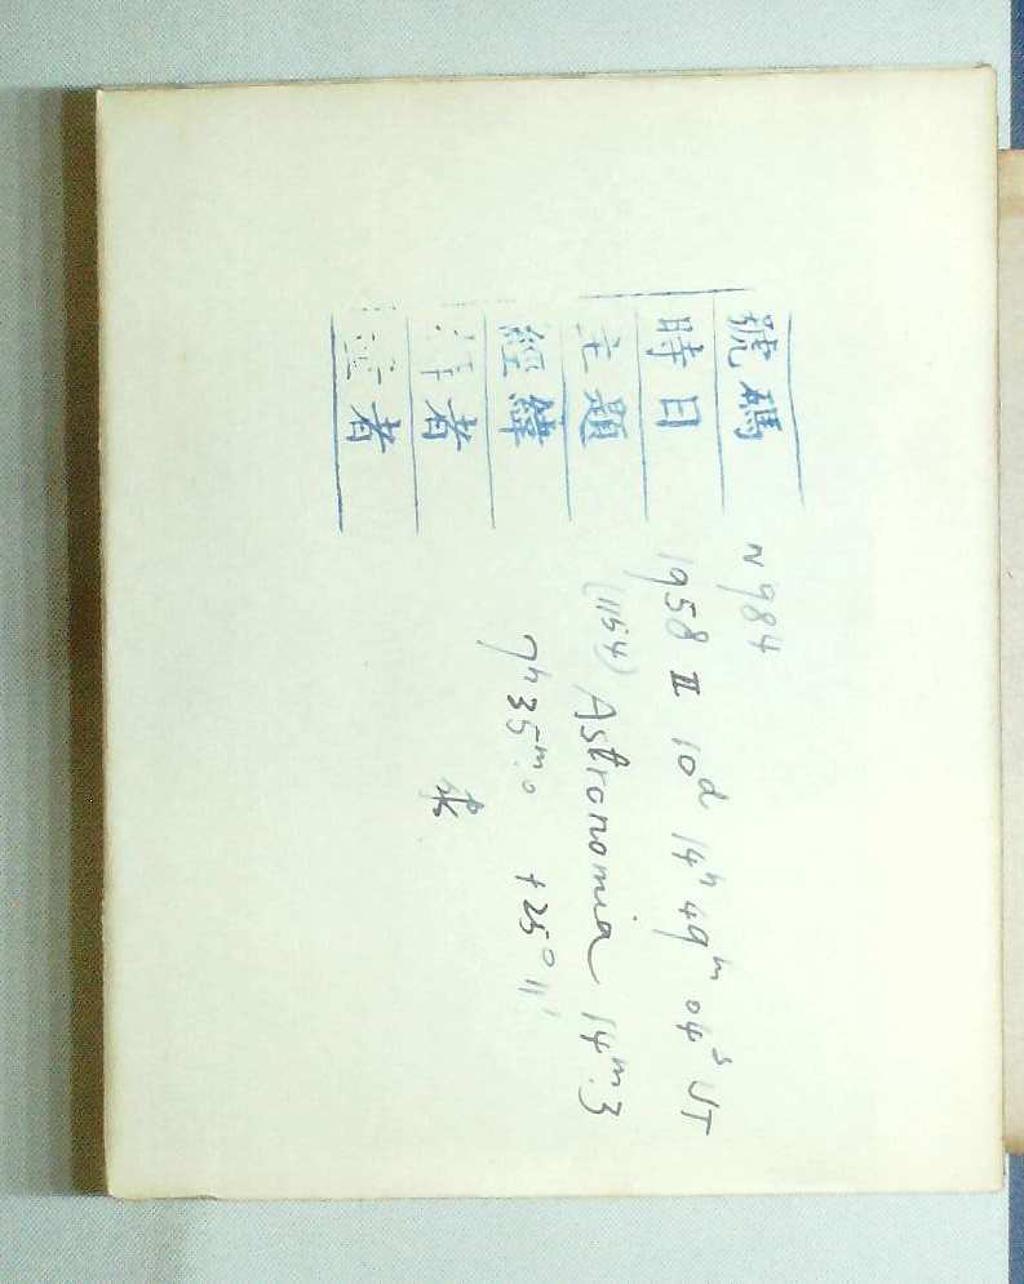 號碼 N984
時日 1958 II 10d 14h 49m 04s UT
主題 (1154) Astronomia 14m.3
經緯 7h35m.0 +25°11'
者
者